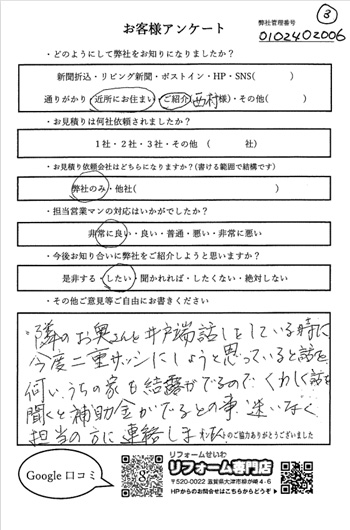 ③
お客様アンケート
弊社管理番号
0102402006
・どのようにして弊社をお知りになりましたか？
新聞折込・リビング新聞・ポストイン・HP・SNS(　　　)
通りがかり・近所にお住まい・ご紹介(西村様)・その他(　　　)
・お見積りは何社依頼されましたか？
1社・2社・3社・その他（　　　社）
・お見積り依頼会社はどちらになりますか？(書ける範囲で結構です)
弊社のみ・他社(　　　)
・担当営業マンの対応はいかがでしたか？
非常に良い・良い・普通・悪い・非常に悪い
・今後お知り合いに弊社をご紹介しようと思いますか？
是非する・したい・聞かれれば・したくない・絶対しない
・その他ご意見等ご自由にお書きください
隣のお奥さんと井戸端話しをしている時に
今度二重サッシにしようと思っていると話を
伺い、うちの家も結露がでるので、くわしく話を
聞くと補助金がでるとの事、迷いなく
担当の方に連絡しました
アンケートのご協力ありがとうございました
Google 口コミ
リフォームせいわ
リフォーム専門店
〒520-0022 滋賀県大津市柳が崎4-6
HPからのお問合せはこちらからどうぞ